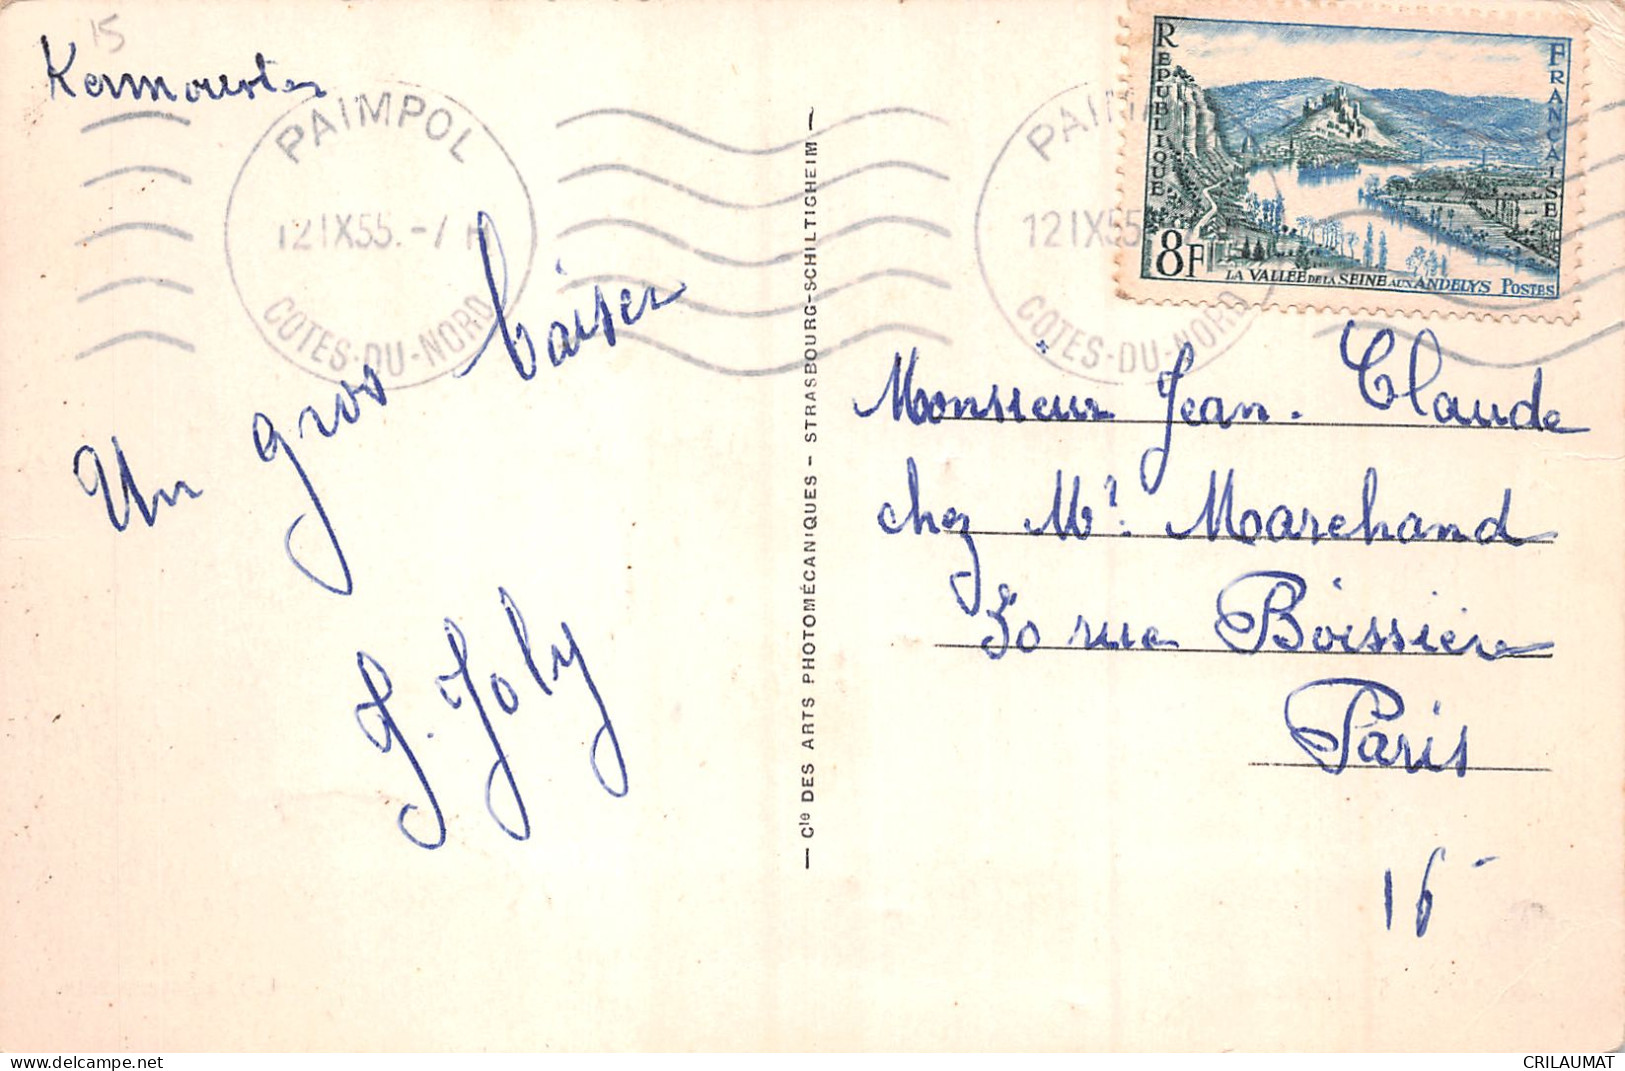 15
Kermouster
PAIMPOL
12 IX 55. -7 H
COTES-DU-NORD
Un gros baiser
J. Joly
— Cie DES ARTS PHOTOMÉCANIQUES - STRASBOURG-SCHILTIGHEIM —
PAIMPOL
12 IX 55
COTES-DU-NORD
REPUBLIQUE
FRANCAISE
8F
LA VALLÉE DE LA SEINE AUX ANDELYS POSTES
Monsieur Jean-Claude
chez Mr. Marchand
30 rue Boissière
Paris
16
CRILAUMAT